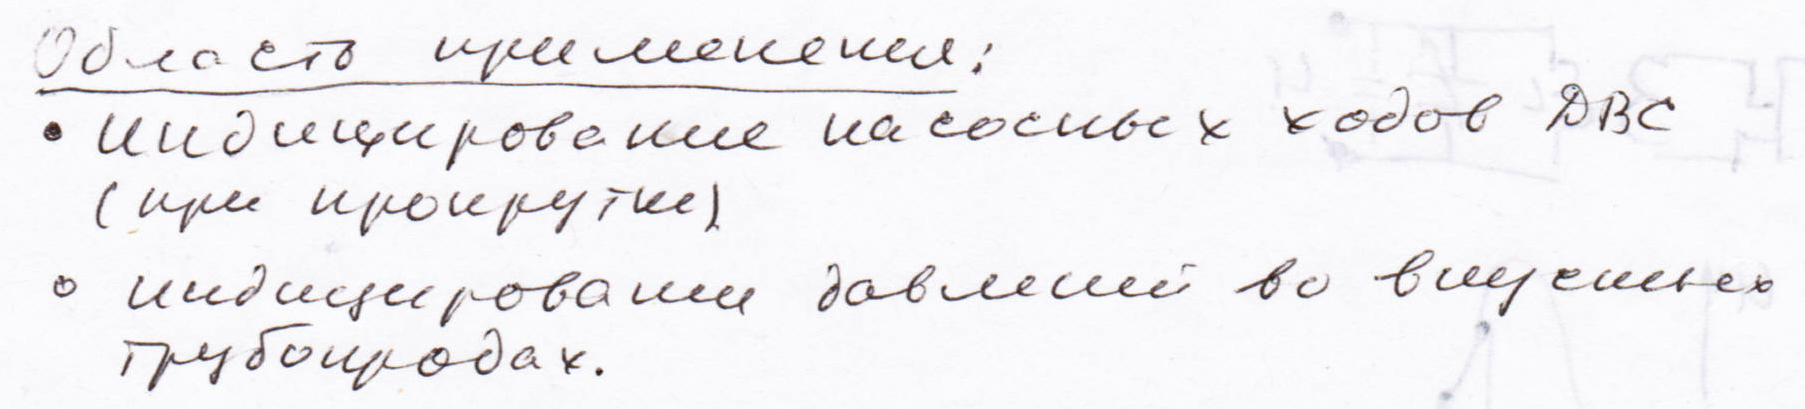 Область применения:
• индицирование насосных ходов ДВС
(при прокрутке)
• индицирование давлений во впускных
трубопродах.